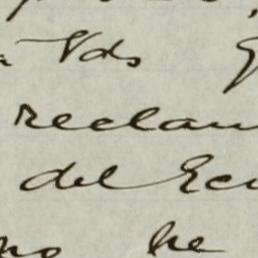 Vds
reclam
del Ecu
no he